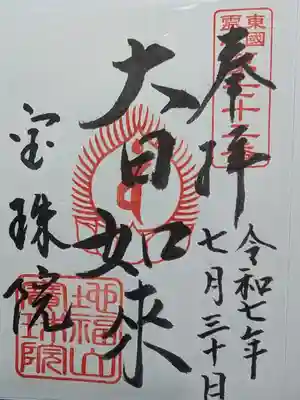 奉拝
令和七年
七月三十日
大日如来
宝珠院
東國